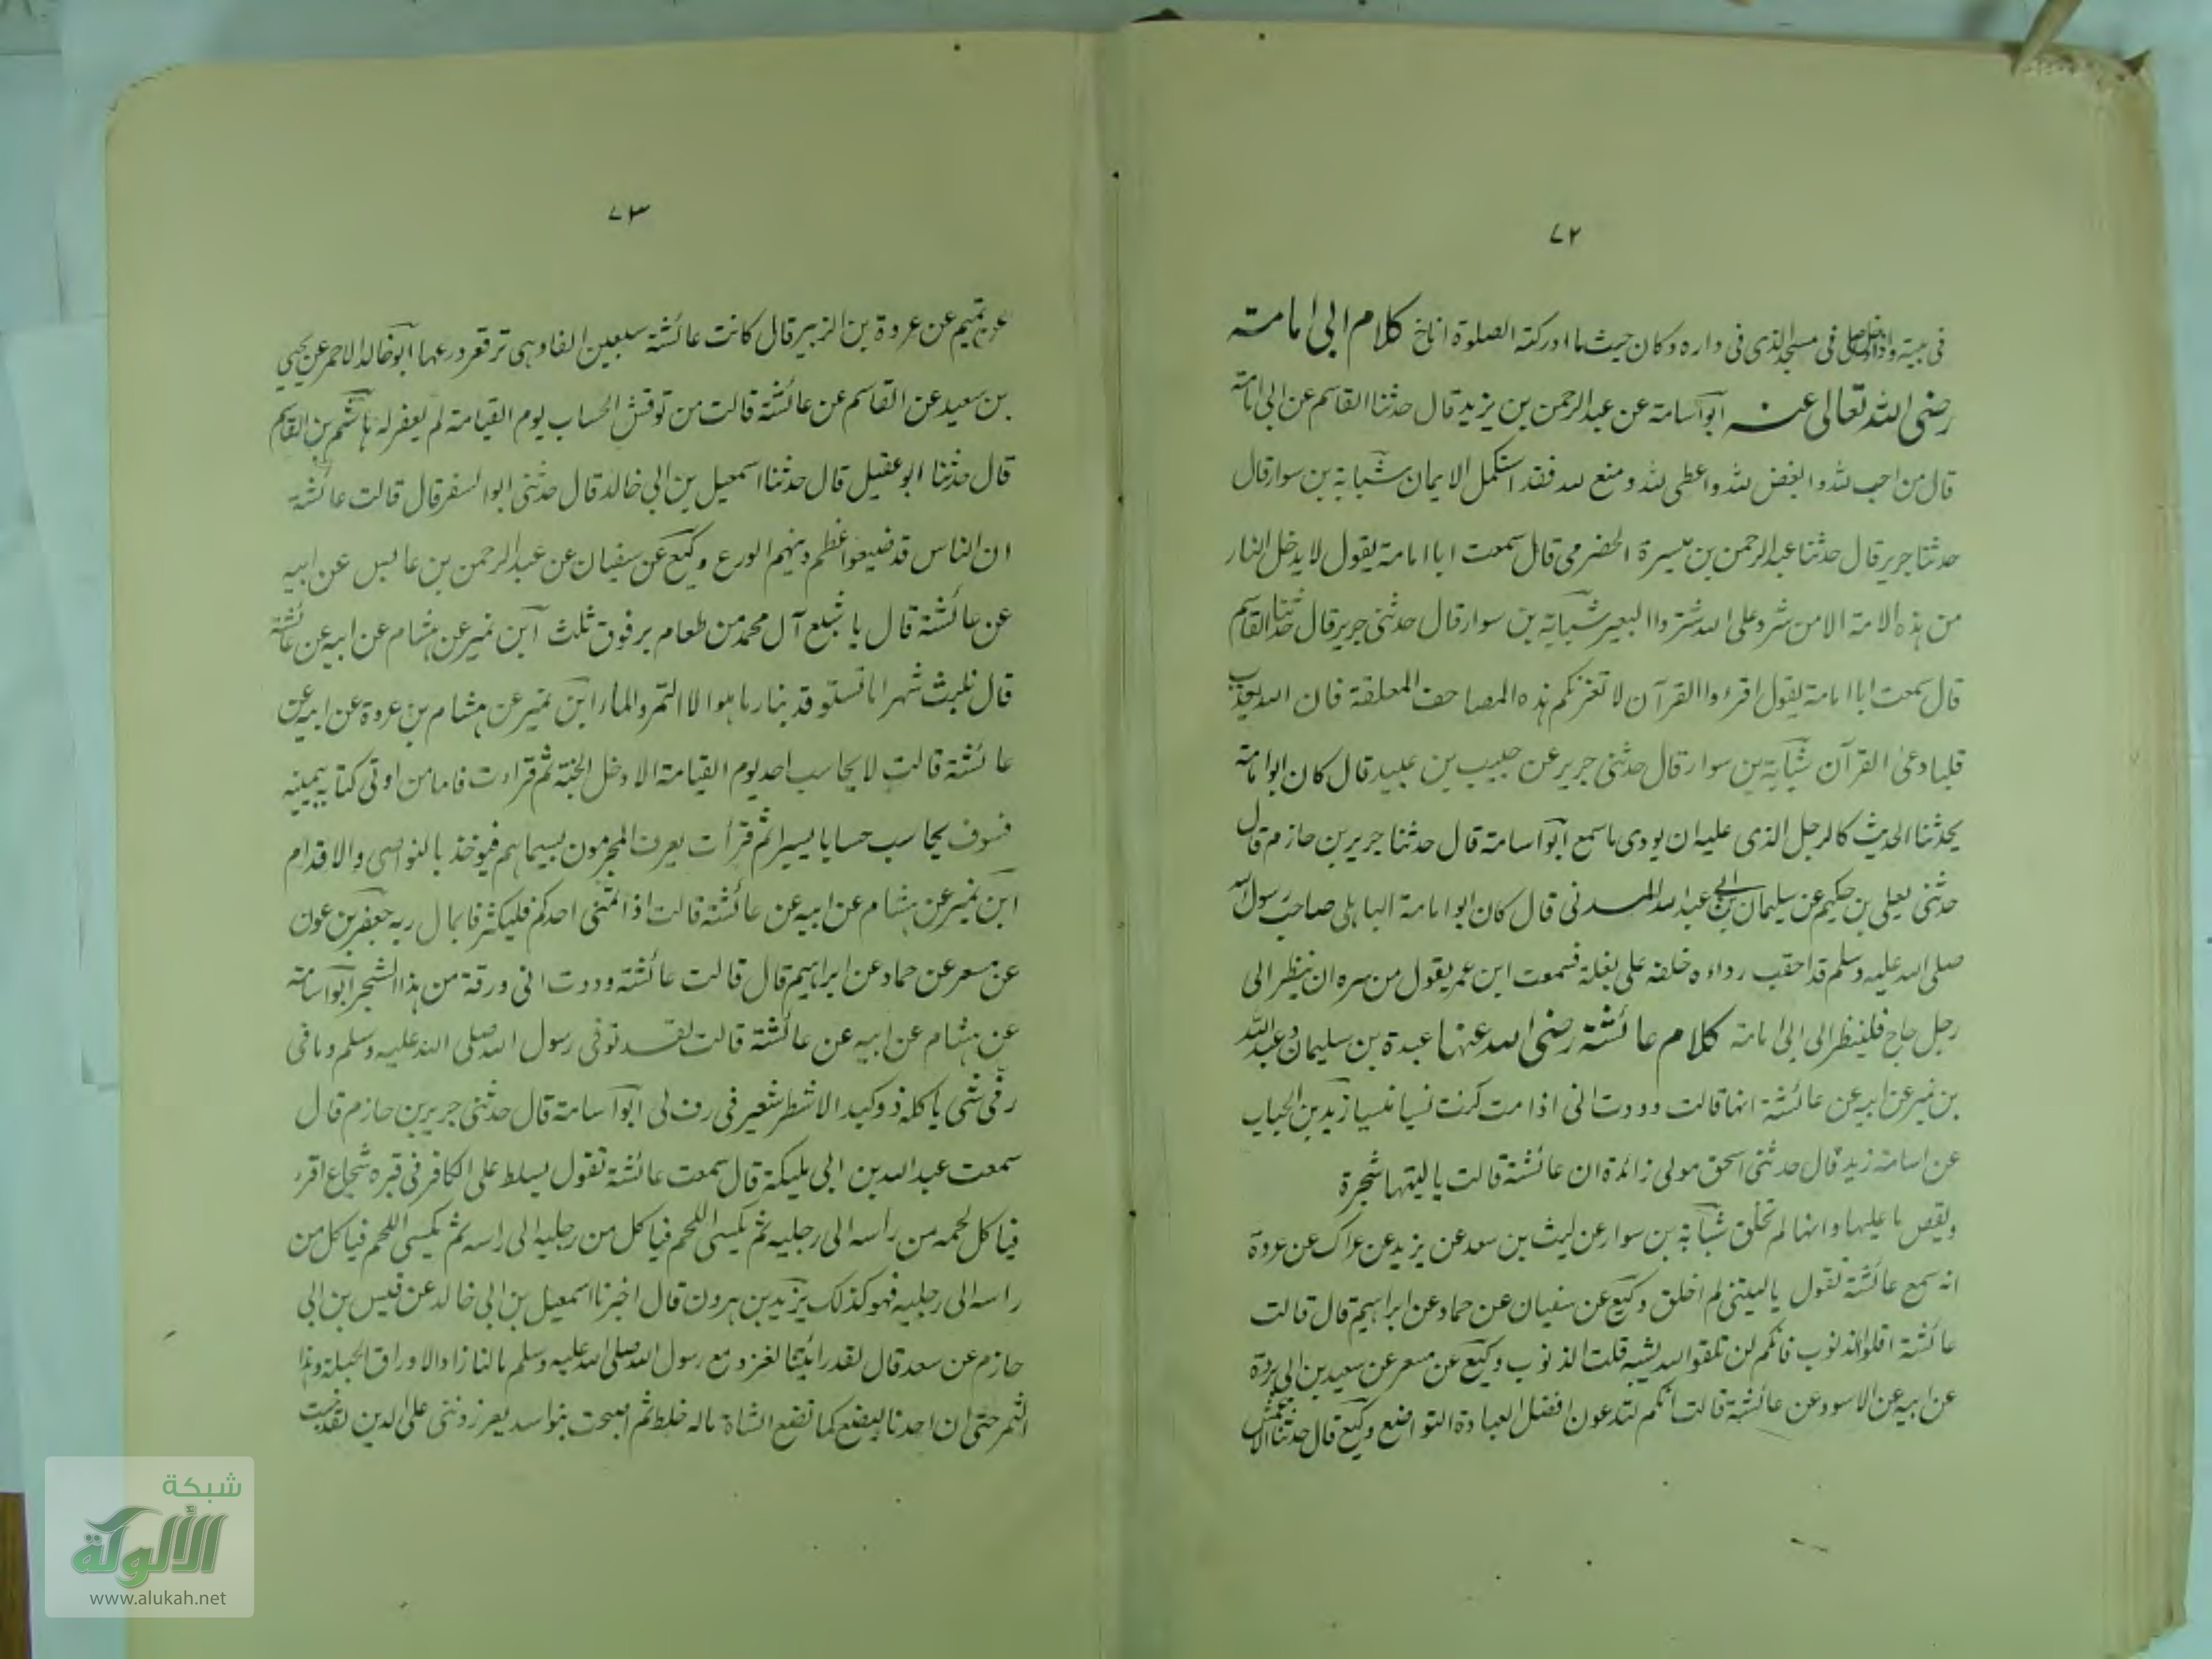 ٧٢
فى بيته واذا صلى فى مسجد الذى فى داره وكان حيث ما ادركته الصلوة اناخ كلام ابى امامته
رضى الله تعالى عنه ابو اسامة عن عبد الرحمن بن يزيد قال حدثنا القاسم عن ابى امامة
قال من احب لله وابغض لله واعطى لله ومنع لله فقد استكمل الايمان شبابة بن سوار قال
حدثنا جرير قال حدثنا عبد الرحمن بن ميسرة الحضرمى قال سمعت ابا امامة يقول لا يدخل النار
من هذه الامة الا من شرد على الله شرود البعير شبابة بن سوار قال حدثنى جرير قال حدثنا القاسم
قال سمعت ابا امامة يقول اقرءوا القرآن لا تغرنكم هذه المصاحف المعلقة فان الله لا يعذب
قلبا وعى القرآن شبابة بن سوار قال حدثنى جرير عن حبيب بن عبيد قال كان ابو امامة
يحدثنا الحديث كالرجل الذى عليه ان يودى ما سمع ابو اسامة قال حدثنا جرير بن حازم قال
حدثنى يعلى بن حكيم عن سليمان بن ابى عبد الله المدنى قال كان ابو امامة الباهلى صاحب رسول الله
صلى الله عليه وسلم قد احقب رداءه خلفه على بغلة فسمعت ابن عمر يقول من سره ان ينظر الى
رجل حاج فلينظر الى ابى امامة كلام عائشة رضى الله عنها عبدة بن سليمان وعبد الله
بن نمير عن ابيه عن عائشة انها قالت وددت انى اذا مت كنت نسيا منسيا زيد بن الحباب
عن اسامة زيد قال حدثنى اسحق مولى زائدة ان عائشة قالت يا ليتها شجرة
ويقص ما عليها وانها لم تخلق شبابة بن سوار عن ليث بن سعد عن يزيد عن عراك عن عروة
انه سمع عائشة تقول يا ليتنى لم اخلق وكيع عن سفيان عن حماد عن ابراهيم قال قالت
عائشة اقلوا الذنوب فانكم لن تلقوا الله يشبه قلت الذنوب وكيع عن مسعر عن سعيد بن ابى بردة
عن ابيه عن الاسود عن عائشة قالت انكم لتدعون افضل العبادة التواضع وكيع قال حدثنا الاعمش
٧٣
عن تميم عن عروة بن الزبير قال كانت عائشة سبعين الفا وهى ترقع درعها ابو خالد الاحمر عن يحيى
بن سعيد عن القاسم عن عائشة قالت من نوقش الحساب يوم القيامة لم يغفر له هاشم بن القاسم
قال حدثنا ابو عقيل قال حدثنا اسمعيل بن ابى خالد قال حدثنى ابو السفر قال قالت عائشة
ان الناس قد ضيعوا اعظم دينهم الورع وكيع عن سفيان عن عبد الرحمن بن عابس عن ابيه
عن عائشة قال ما شبع آل محمد من طعام بر فوق ثلث ابن نمير عن هشام عن ابيه عن عائشة
قال نلبث شهرا ما نستوقد بنار ما هو الا التمر والماء ابن نمير عن هشام بن عروة عن ابيه عن
عائشة قالت لا يحاسب احد يوم القيامة الا دخل الجنة ثم قراءت فاما من اوتى كتابه بيمينه
فسوف يحاسب حسابا يسيرا ثم قرأت يعرف المجرمون بسيماهم فيوخذ بالنواصى والاقدام
ابن نمير عن هشام عن ابيه عن عائشة قالت اذا تمنى احدكم فليكثر فانما سال ربه جعفر بن عون
عن مسعر عن حماد عن ابراهيم قال قالت عائشة وددت انى ورقة من هذا الشجر ابو اسامة
عن هشام عن ابيه عن عائشة قالت لقد توفى رسول الله صلى الله عليه وسلم وما فى
رفى شى ياكله ذو كبد الا شطر شعير فى رف لى ابو اسامة قال حدثنى جرير بن حازم قال
سمعت عبد الله بن ابى مليكة قال سمعت عائشة تقول يسلط على الكافر فى قبره شجاع اقرع
فياكل لحمه من راسه الى رجليه ثم يكسى اللحم فياكل من رجليه الى راسه ثم يكسى اللحم فياكل من
راسه الى رجليه فهو كذلك يزيد بن هرون قال اخبرنا اسمعيل بن ابى خالد عن قيس بن ابى
حازم عن سعد قال لقد رأيتنا لغزو مع رسول الله صلى الله عليه وسلم ما لنا زاد الا وراق الحبلة وهذا
السمر حتى ان احدنا ليضع كما تضع الشاة ماله خلط ثم اصبحت بنو اسد يعزروننى على الدين لقد خبت
شبكة
الألوكة
www.alukah.net